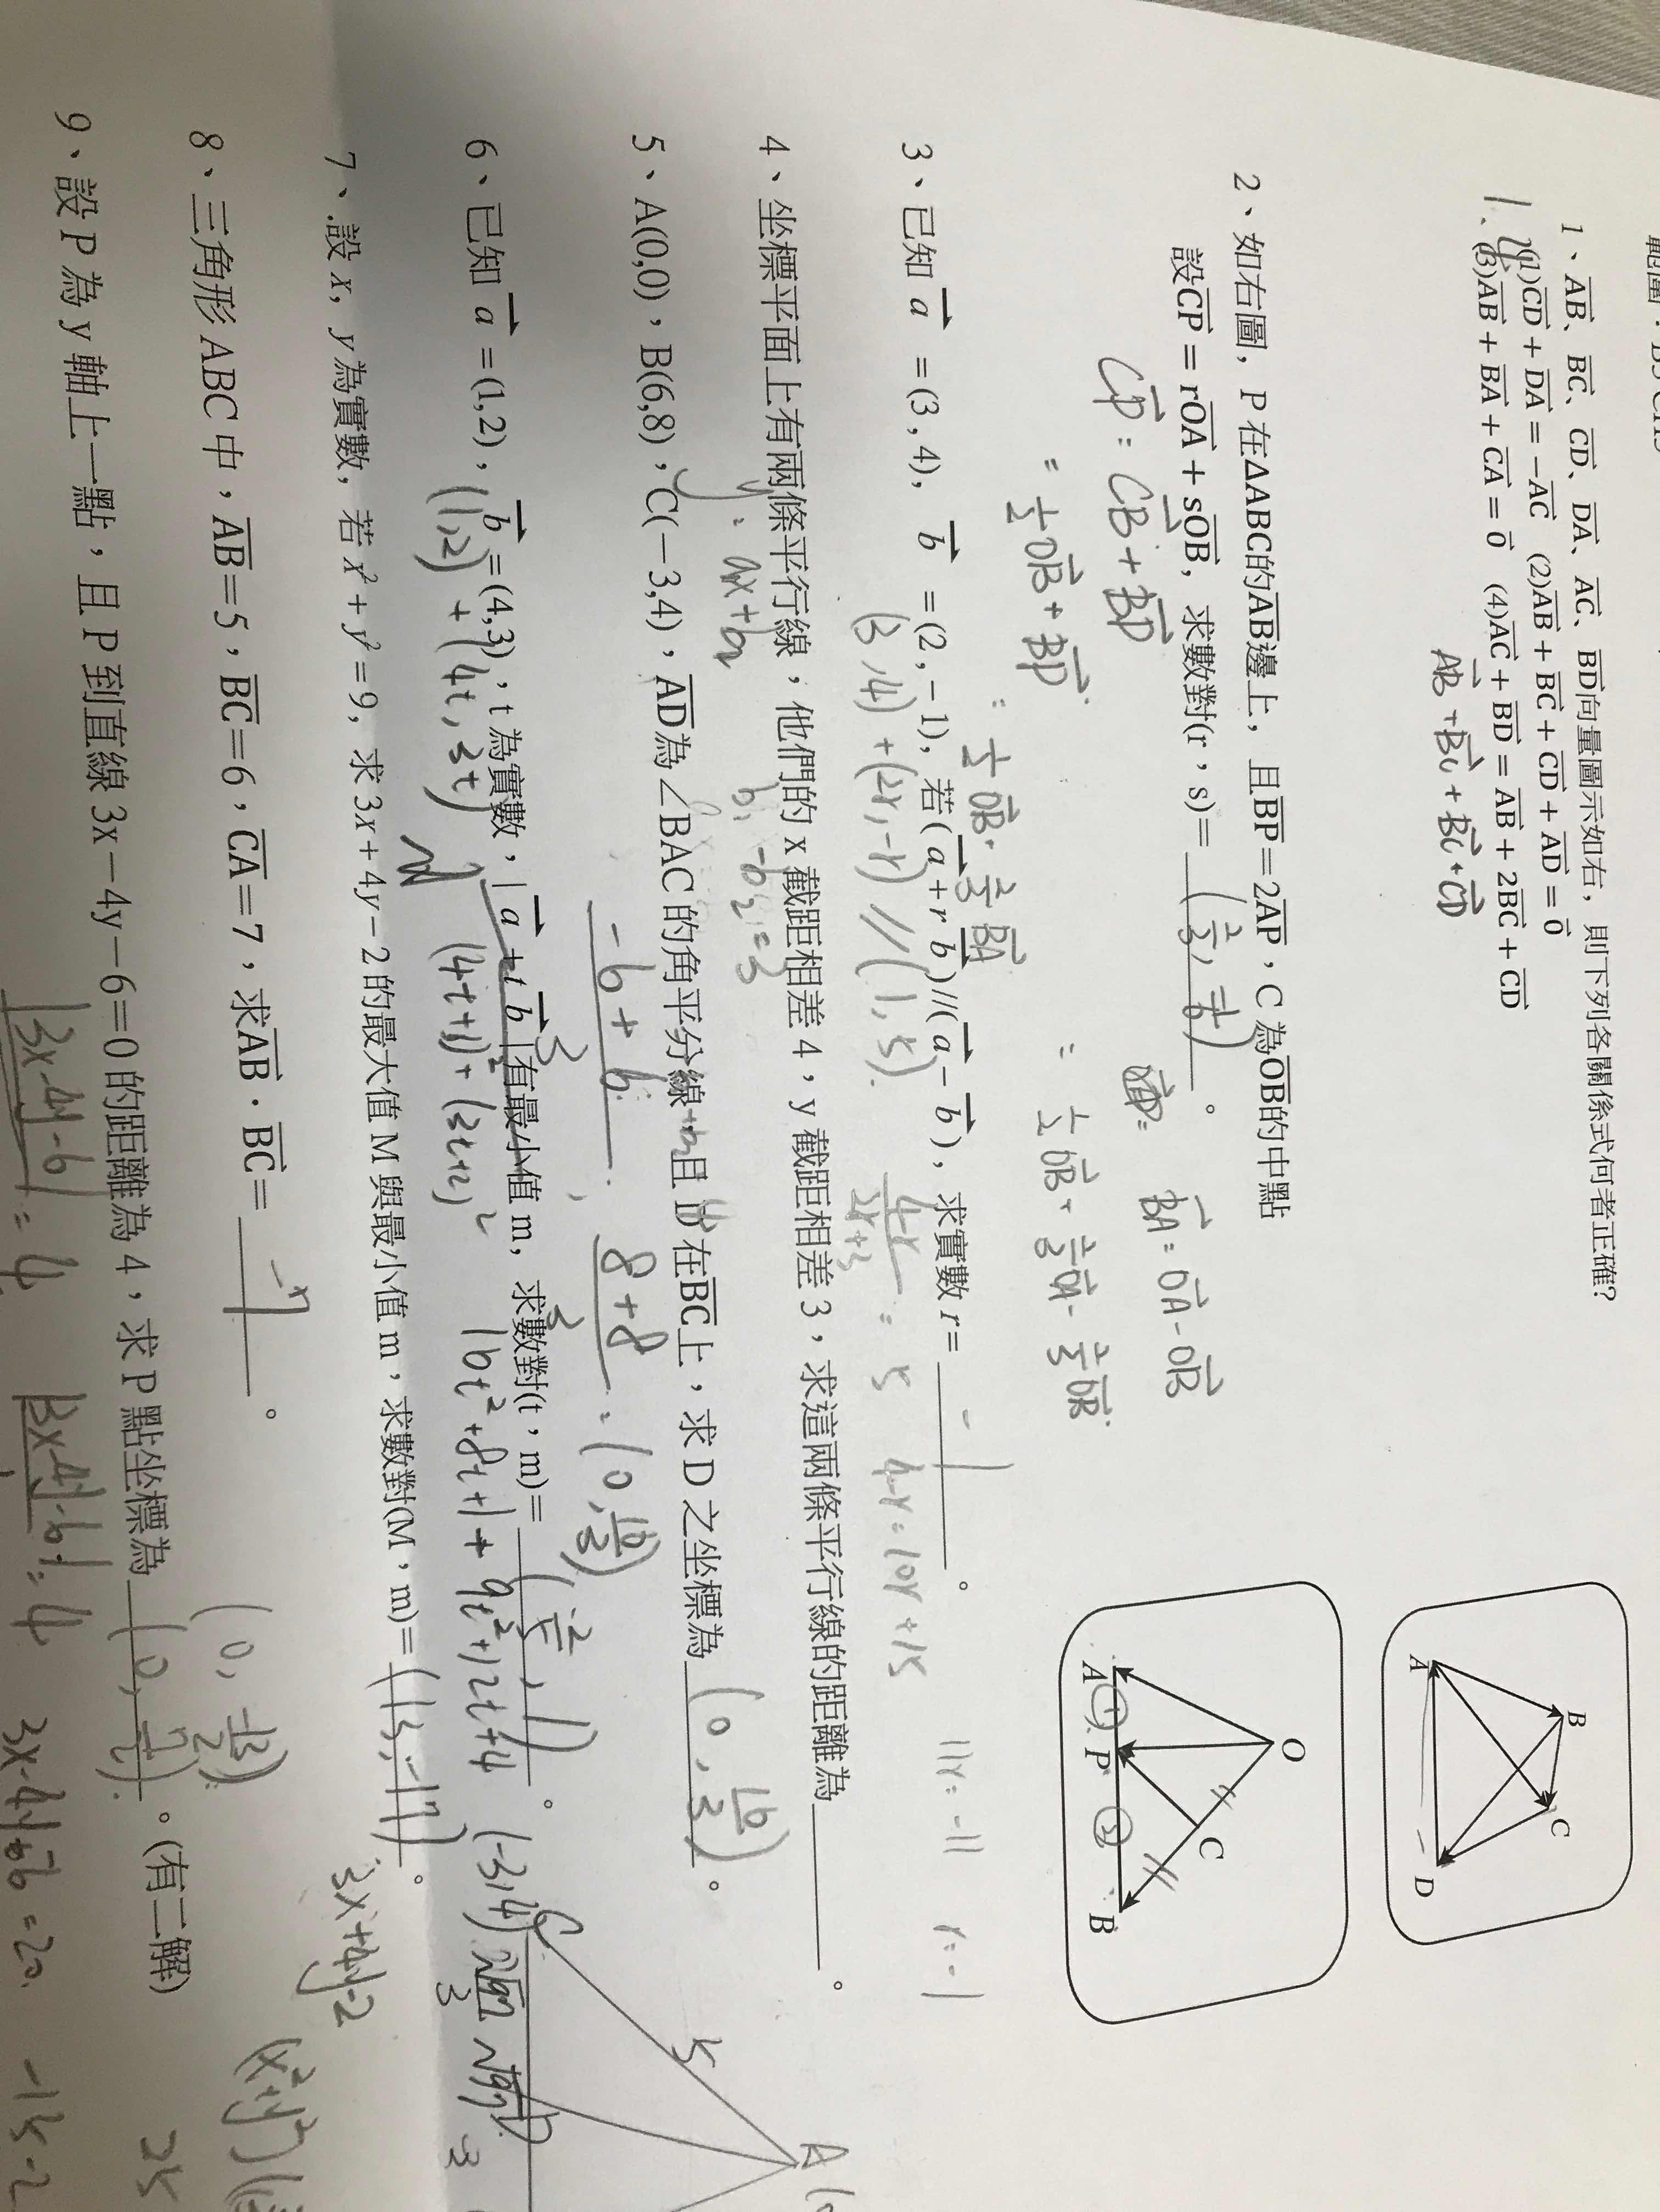 1、AB、BC、CD、DA、AC、BD向量圖示如右，則下列各關係式何者正確?
(1)CD + DA = −AC (2)AB + BC + CD + AD = 0
1、4
(3)AB + BA + CA = 0 (4)AC + BD = AB + 2BC + CD
AB + BC + BC + CD
A
B
C
D
2、如右圖，P 在ΔABC的AB邊上，且BP = 2AP，C 為OB的中點
設CP = rOA + sOB，求數對(r，s)= (2/3, -1/6) 。
CP = CB + BP
BA = OA - OB
= 1/2 OB + BP
= 1/2 OB + 2/3 BA
= 1/2 OB + 2/3 OA - 2/3 OB
O
A ① P ② B
C
3、已知 a = (3 , 4)， b = (2 , −1)，若( a + r b )//( a − b )，求實數 r = -1 。
(3, 4) + (2r, -r) // (1, 5)
4-r / 2r+3 = 5 4-r = 10r + 15 11r = -11 r = -1
4、坐標平面上有兩條平行線，他們的 x 截距相差 4，y 截距相差 3，求這兩條平行線的距離為 。
y = ax + b
5、A(0,0)，B(6,8)，C(−3,4)，AD為∠BAC 的角平分線，且 D 在BC上，求 D 之坐標為 (0, 16/3) 。
-6 + 6 / 3 , 8 + 8 / 3 = (0, 16/3)
6、已知 a = (1,2)， b = (4,3)，t 為實數，| a + t b |有最小值 m，求數對(t，m)= (-2/5, 1) 。
(1,2) + (4t, 3t) (4t+1)² + (3t+2)² 16t² + 8t + 1 + 9t² + 12t + 4
(-3,4) C 5 A
7、設 x，y 為實數，若 x² + y² = 9，求 3x + 4y − 2 的最大值 M 與最小值 m，求數對(M，m)= (13, -17) 。
3x + 4y - 2
8、三角形 ABC 中，AB = 5，BC = 6，CA = 7，求AB · BC = 。
(0, -13/2)
25
9、設 P 為 y 軸上一點，且 P 到直線 3x − 4y − 6 = 0 的距離為 4，求 P 點坐標為 (0, 7/2) 。(有二解)
|3x-4y-6| = 4 |3x-4y-6| = 4 3x-4y-6 = 20